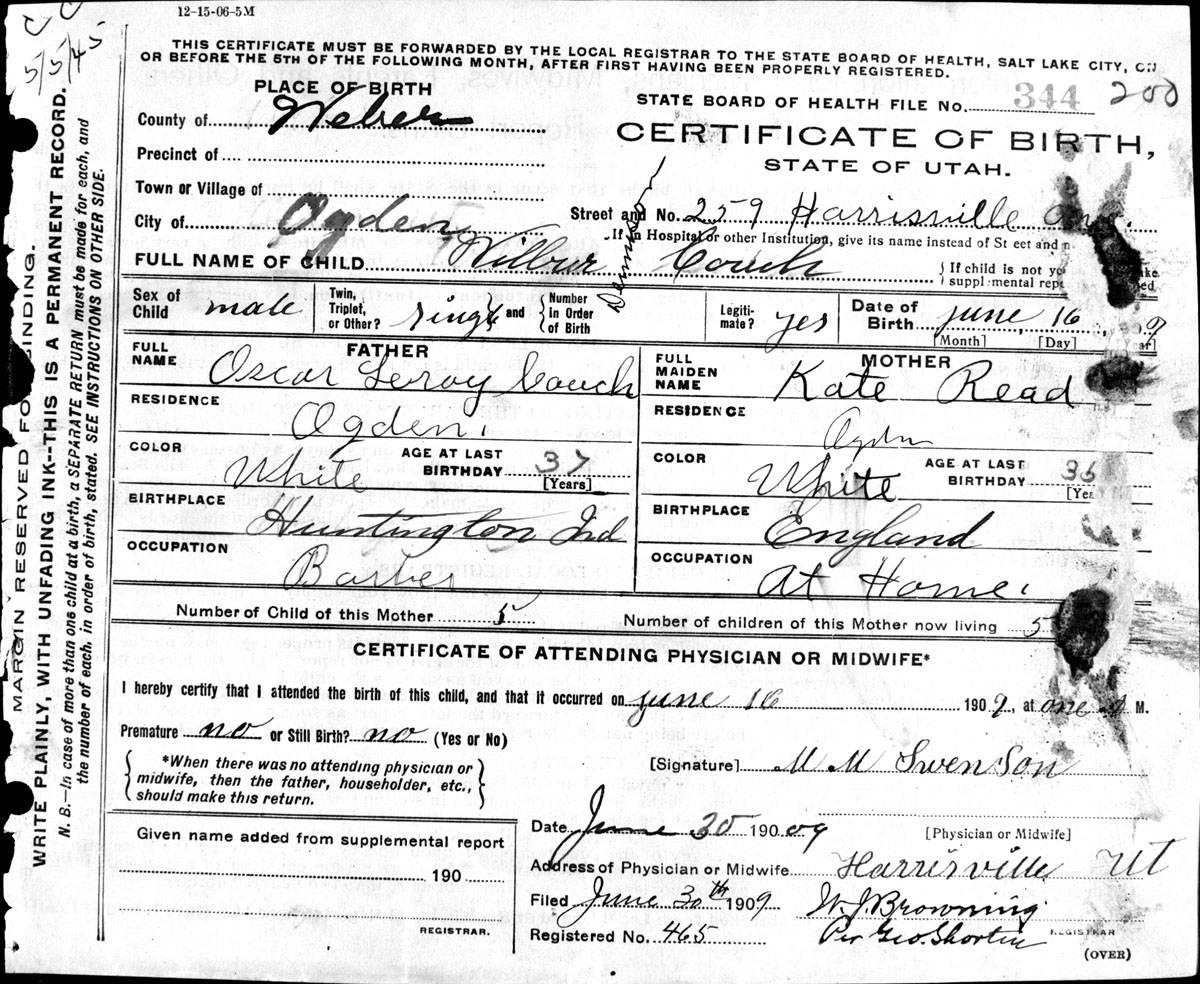 12-15-06-5M
C C
5/5/45
THIS CERTIFICATE MUST BE FORWARDED BY THE LOCAL REGISTRAR TO THE STATE BOARD OF HEALTH, SALT LAKE CITY, ON
OR BEFORE THE 5TH OF THE FOLLOWING MONTH, AFTER FIRST HAVING BEEN PROPERLY REGISTERED.
PLACE OF BIRTH
STATE BOARD OF HEALTH FILE NO. 344 200
County of Weber
CERTIFICATE OF BIRTH,
STATE OF UTAH.
Precinct of
Town or Village of
City of Ogden
Street and No. 259 Harrisville ave.
If in Hospital or other Institution, give its name instead of St eet and n
FULL NAME OF CHILD Wilbur Dennison Couch
{ If child is not ye
{ suppl mental repo
Sex of Child male
Twin, Triplet, or Other? single and { Number in Order of Birth
Legitimate? yes
Date of Birth June 16 09
[Month] [Day]
FATHER
FULL NAME Oscar Leroy Couch
RESIDENCE Ogden.
COLOR White AGE AT LAST BIRTHDAY 37 [Years]
BIRTHPLACE Huntington Ind
OCCUPATION Barber
MOTHER
FULL MAIDEN NAME Kate Read
RESIDENCE Ogden
COLOR White AGE AT LAST BIRTHDAY 36 [Yea
BIRTHPLACE England
OCCUPATION At Home.
Number of Child of this Mother 5
Number of children of this Mother now living 5
CERTIFICATE OF ATTENDING PHYSICIAN OR MIDWIFE*
I hereby certify that I attended the birth of this child, and that it occurred on June 16 1909, at one M.
Premature no or Still Birth? no (Yes or No)
*When there was no attending physician or
midwife, then the father, householder, etc.,
should make this return.
[Signature] M M Swenson
Date June 30 190 09 [Physician or Midwife]
Address of Physician or Midwife Harrisville Ut
Filed June 30th 1909 W. J. Browning
Registered No. 465 Per Geo. Shorten REGISTRAR
(OVER)
Given name added from supplemental report
190
REGISTRAR.
MARGIN RESERVED FOR BINDING
WRITE PLAINLY, WITH UNFADING INK--THIS IS A PERMANENT RECORD.
N. B.--In case of more than one child at a birth, a SEPARATE RETURN must be made for each, and
the number of each, in order of birth, stated. SEE INSTRUCTIONS ON OTHER SIDE.